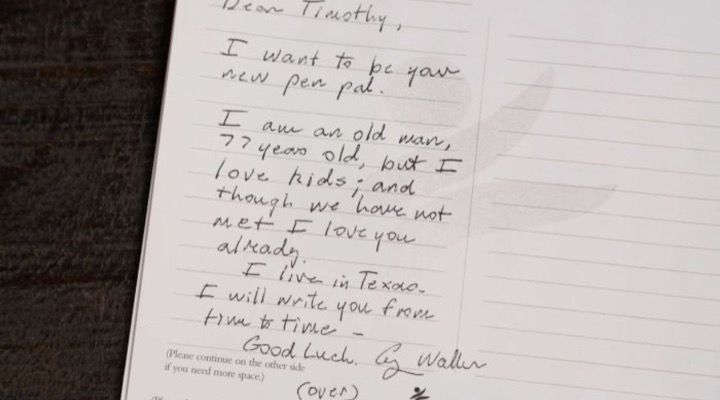 Dear Timothy,
I want to be your
new pen pal.
I am an old man,
77 years old, but I
love kids; and
though we have not
met I love you
already.
I live in Texas-
I will write you from
time to time -
Good Luck. G Walker
(Please continue on the other side
if you need more space.)
(over)